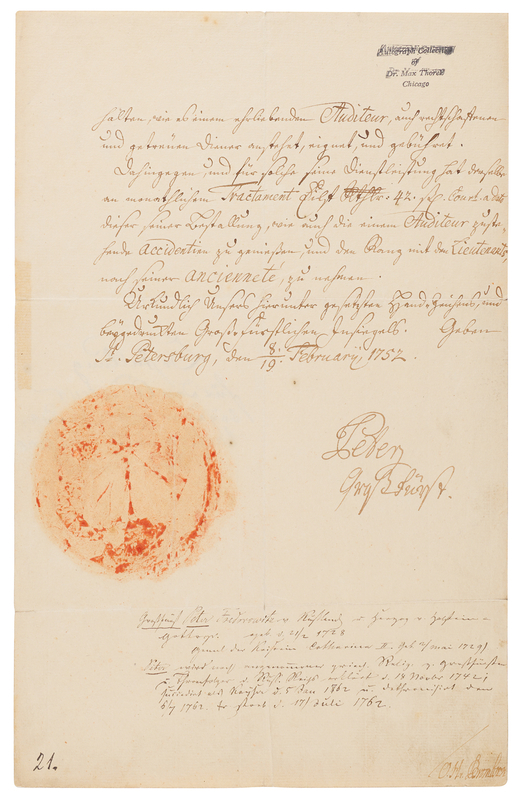 Autograph Collection
of
Dr. Max Thorek
Chicago
halten, wie es einem ehrliebenden Auditeur, auch rechtschaffenen
und getreuen Diener anstehet, eignet, und gebühret.
Dahingegen, und für solche seine Dienstleistung hat derselbe
an monathlichem Tractament Zwölf Rthlr. 42. ßl. Cour: a dato
dieser seiner Bestallung, wie auch die einem Auditeur zuste-
hende Accidentien zu genießen, und den Rang mit den Lieutenants
nach seiner ancienneté, zu nehmen.
Uhrkundlich Unsers hierunter gesetzten Hand-Zeichens, und
beygedruckten Groß-Fürstlichen Insiegels. Geben
St. Petersburg, den 8./19. February, 1752.
Peter
Großfürst.
Großfürst Peter Feodorowitz v. Rußland u. Herzog v. Holstein-
Gottorp. geb. d. 21/2 1728
Gemal der Kaiserin Catharina II. Geb 2/mai 1729)
Peter
d. 18 Novbr 1742;
d. 5 Jan 1862 u.
6/7 1762. d. 17/ Juli 1762.
21.